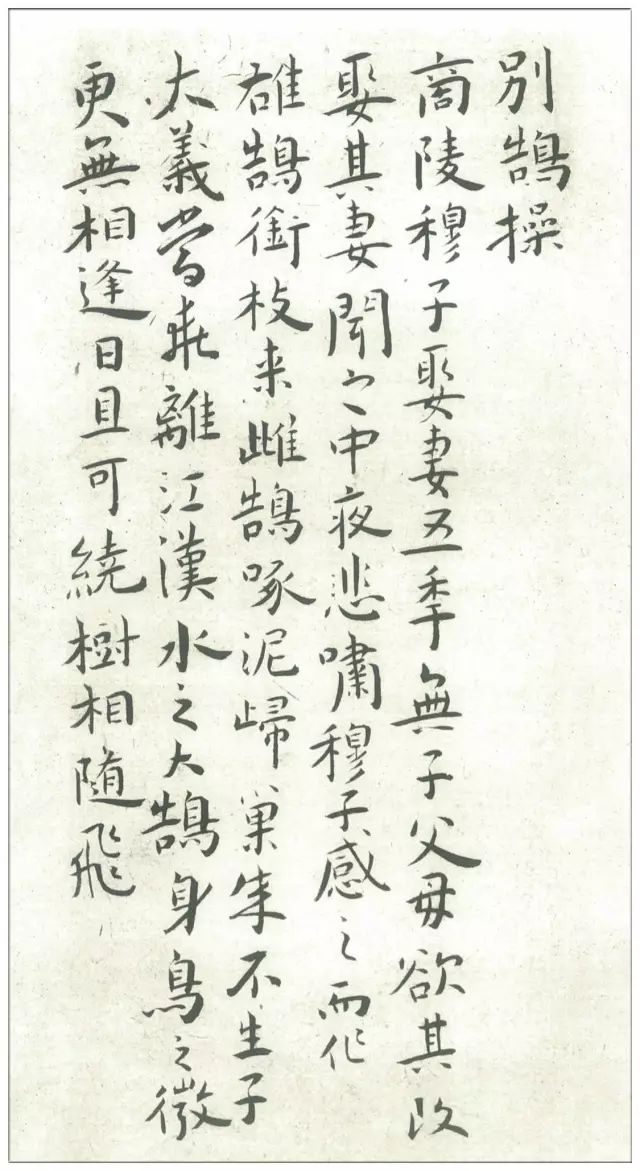 别鵠操
商陵穆子娶妻五年無子父母欲其改
娶其妻聞之中夜悲嘯穆子感之而作
雄鵠銜枝来雌鵠啄泥歸巢成不生子
大義當乖離江漢水之大鵠身鳥之微
更無相逢日且可繞樹相随飛